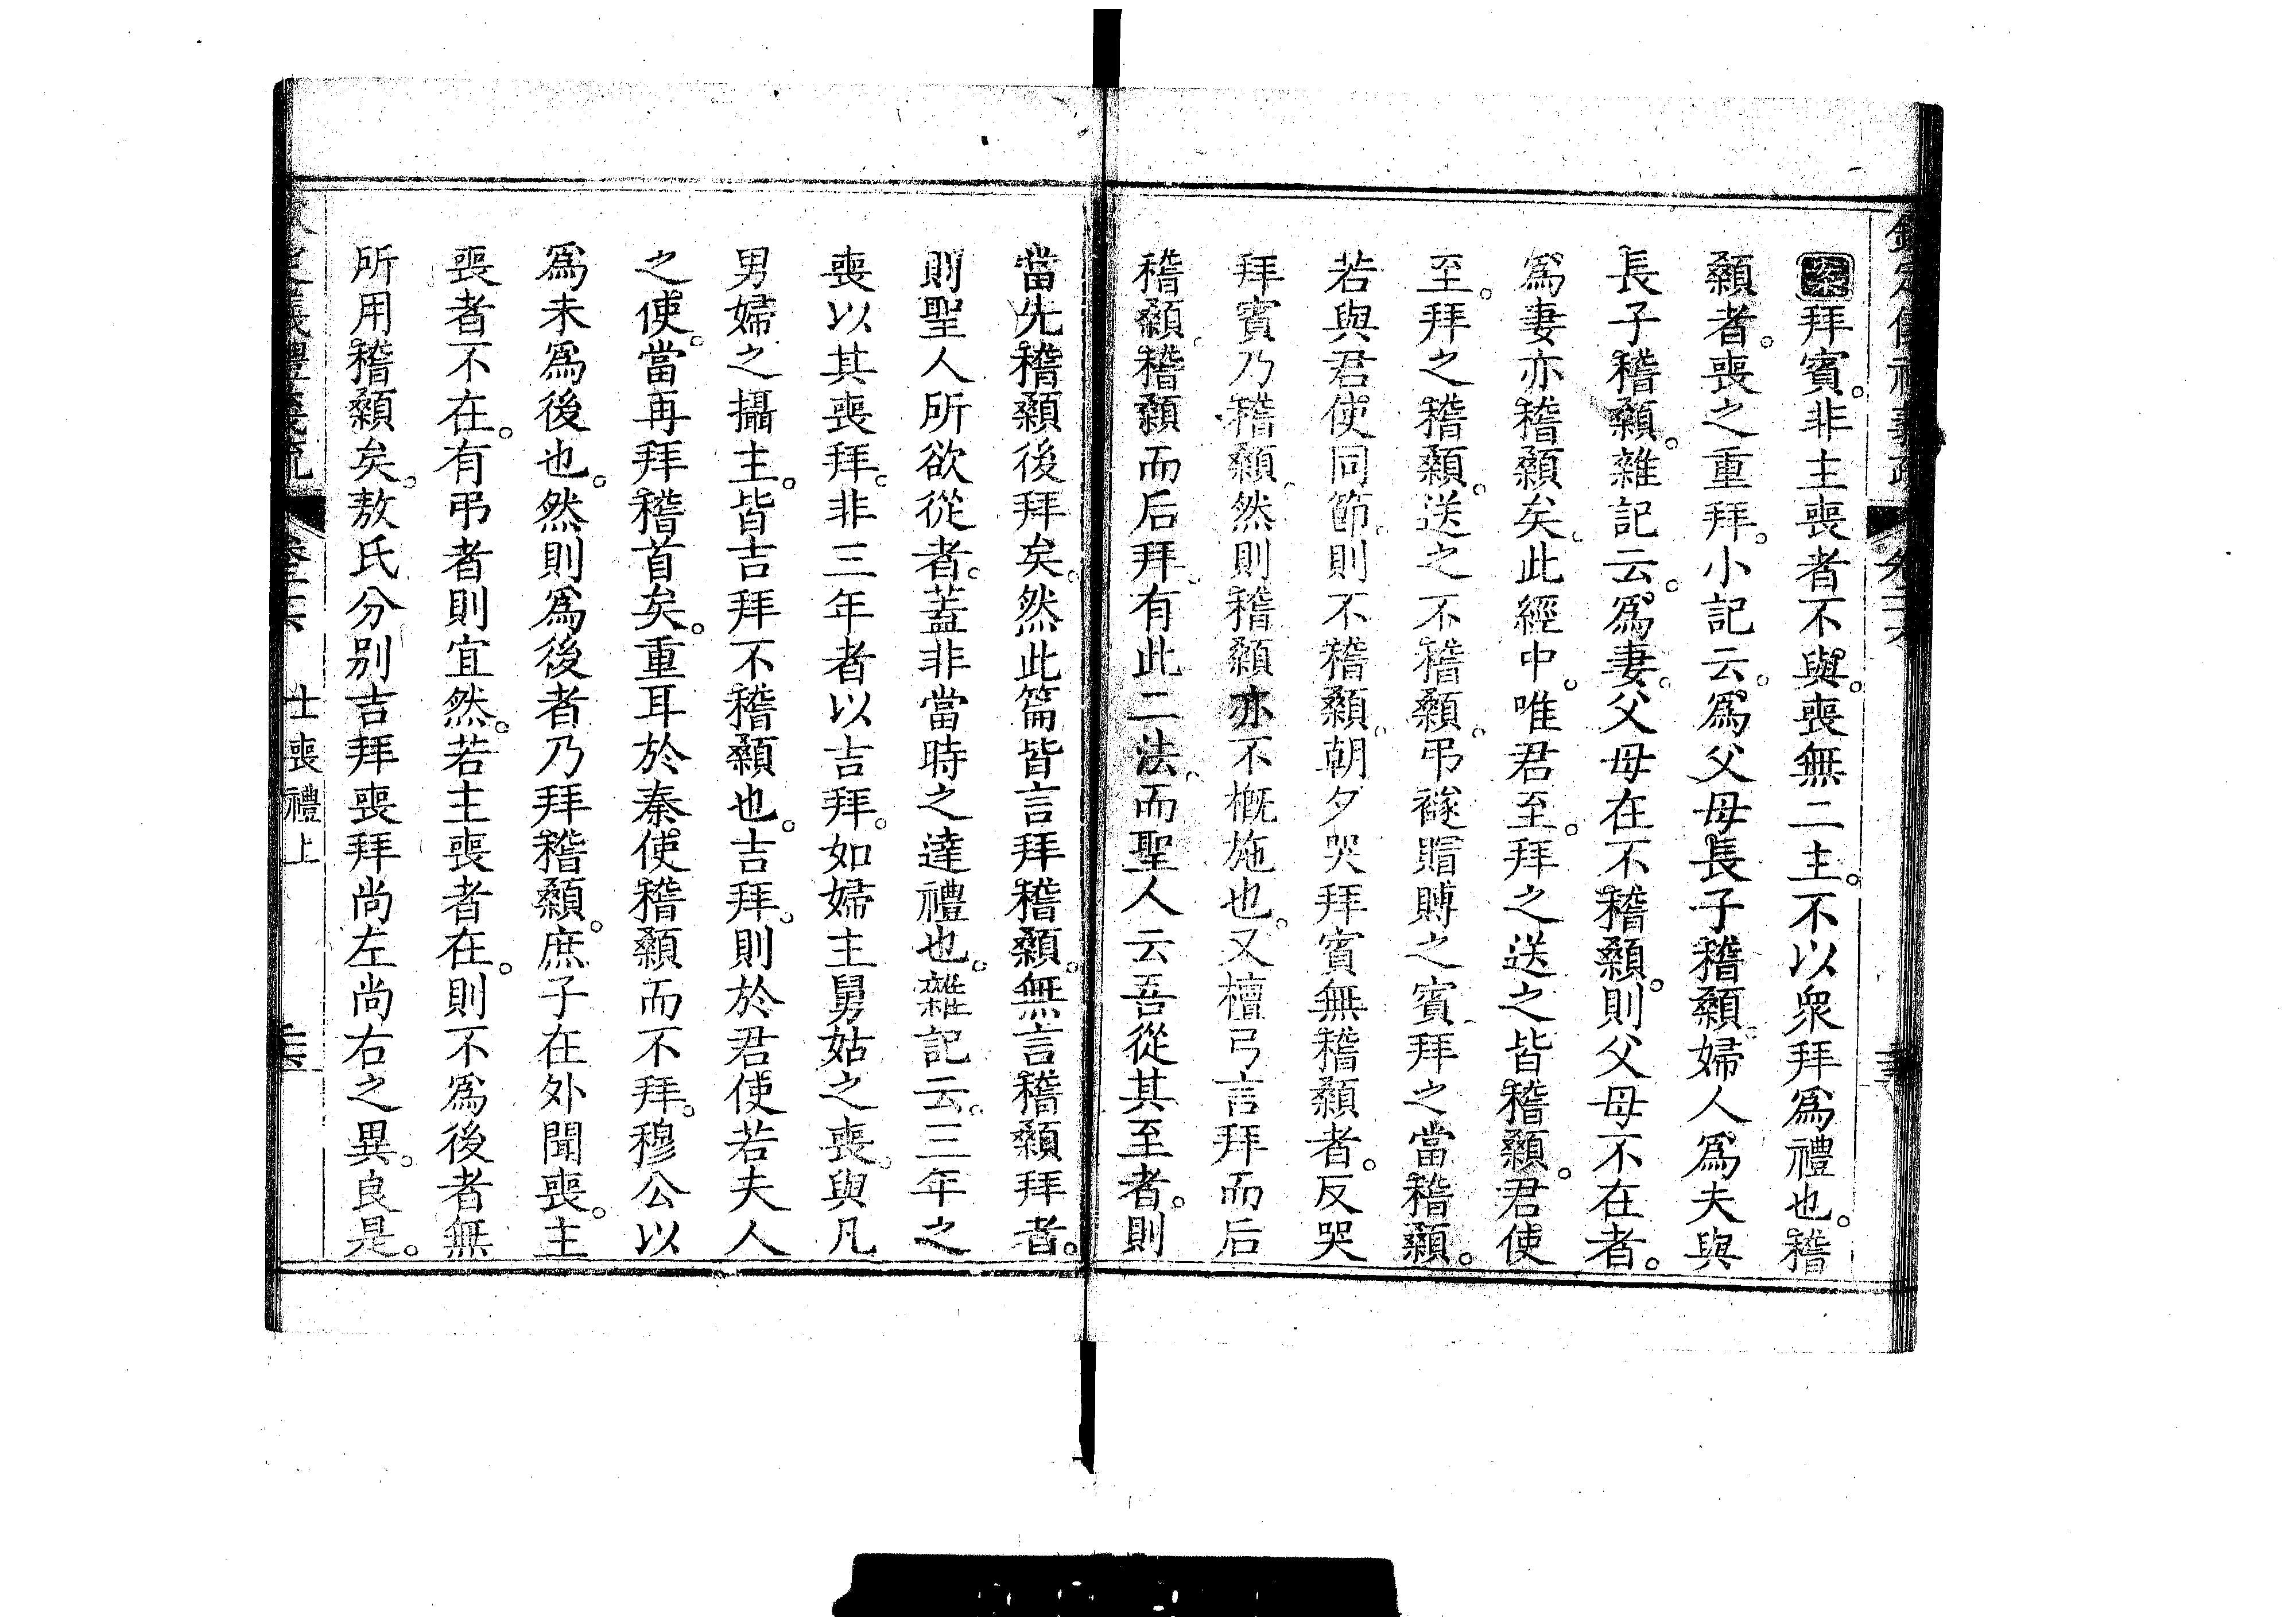 案拜賓。非主喪者不與。喪無二主。不以衆拜爲禮也。稽
顙者。喪之重拜。小記云。爲父母長子稽顙。婦人爲夫與
長子稽顙。雜記云。爲妻。父母在不稽顙。則父母不在者。
爲妻亦稽顙矣。此經中。唯君至。拜之送之皆稽顙。君使
至。拜之稽顙。送之不稽顙。弔襚賵賻之賓。拜之當稽顙。
若與君使同節。則不稽顙。朝夕哭拜賓無稽顙者。反哭
拜賓乃稽顙。然則稽顙亦不槪施也。又檀弓言拜而后
稽顙。稽顙而后拜。有此二法。而聖人云吾從其至者。則
當先稽顙後拜矣。然此篇皆言拜稽顙。無言稽顙拜者。
則聖人所欲從者。蓋非當時之達禮也。雜記云。三年之
喪以其喪拜。非三年者以吉拜。如婦主舅姑之喪。與凡
男婦之攝主。皆吉拜不稽顙也。吉拜。則於君使若夫人
之使。當再拜稽首矣。重耳於秦使稽顙而不拜。穆公以
爲未爲後也。然則爲後者乃拜稽顙。庶子在外聞喪。主
喪者不在。有弔者則宜然。若主喪者在。則不爲後者無
所用稽顙矣。敖氏分別吉拜喪拜尚左尚右之異。良是。
士喪禮上